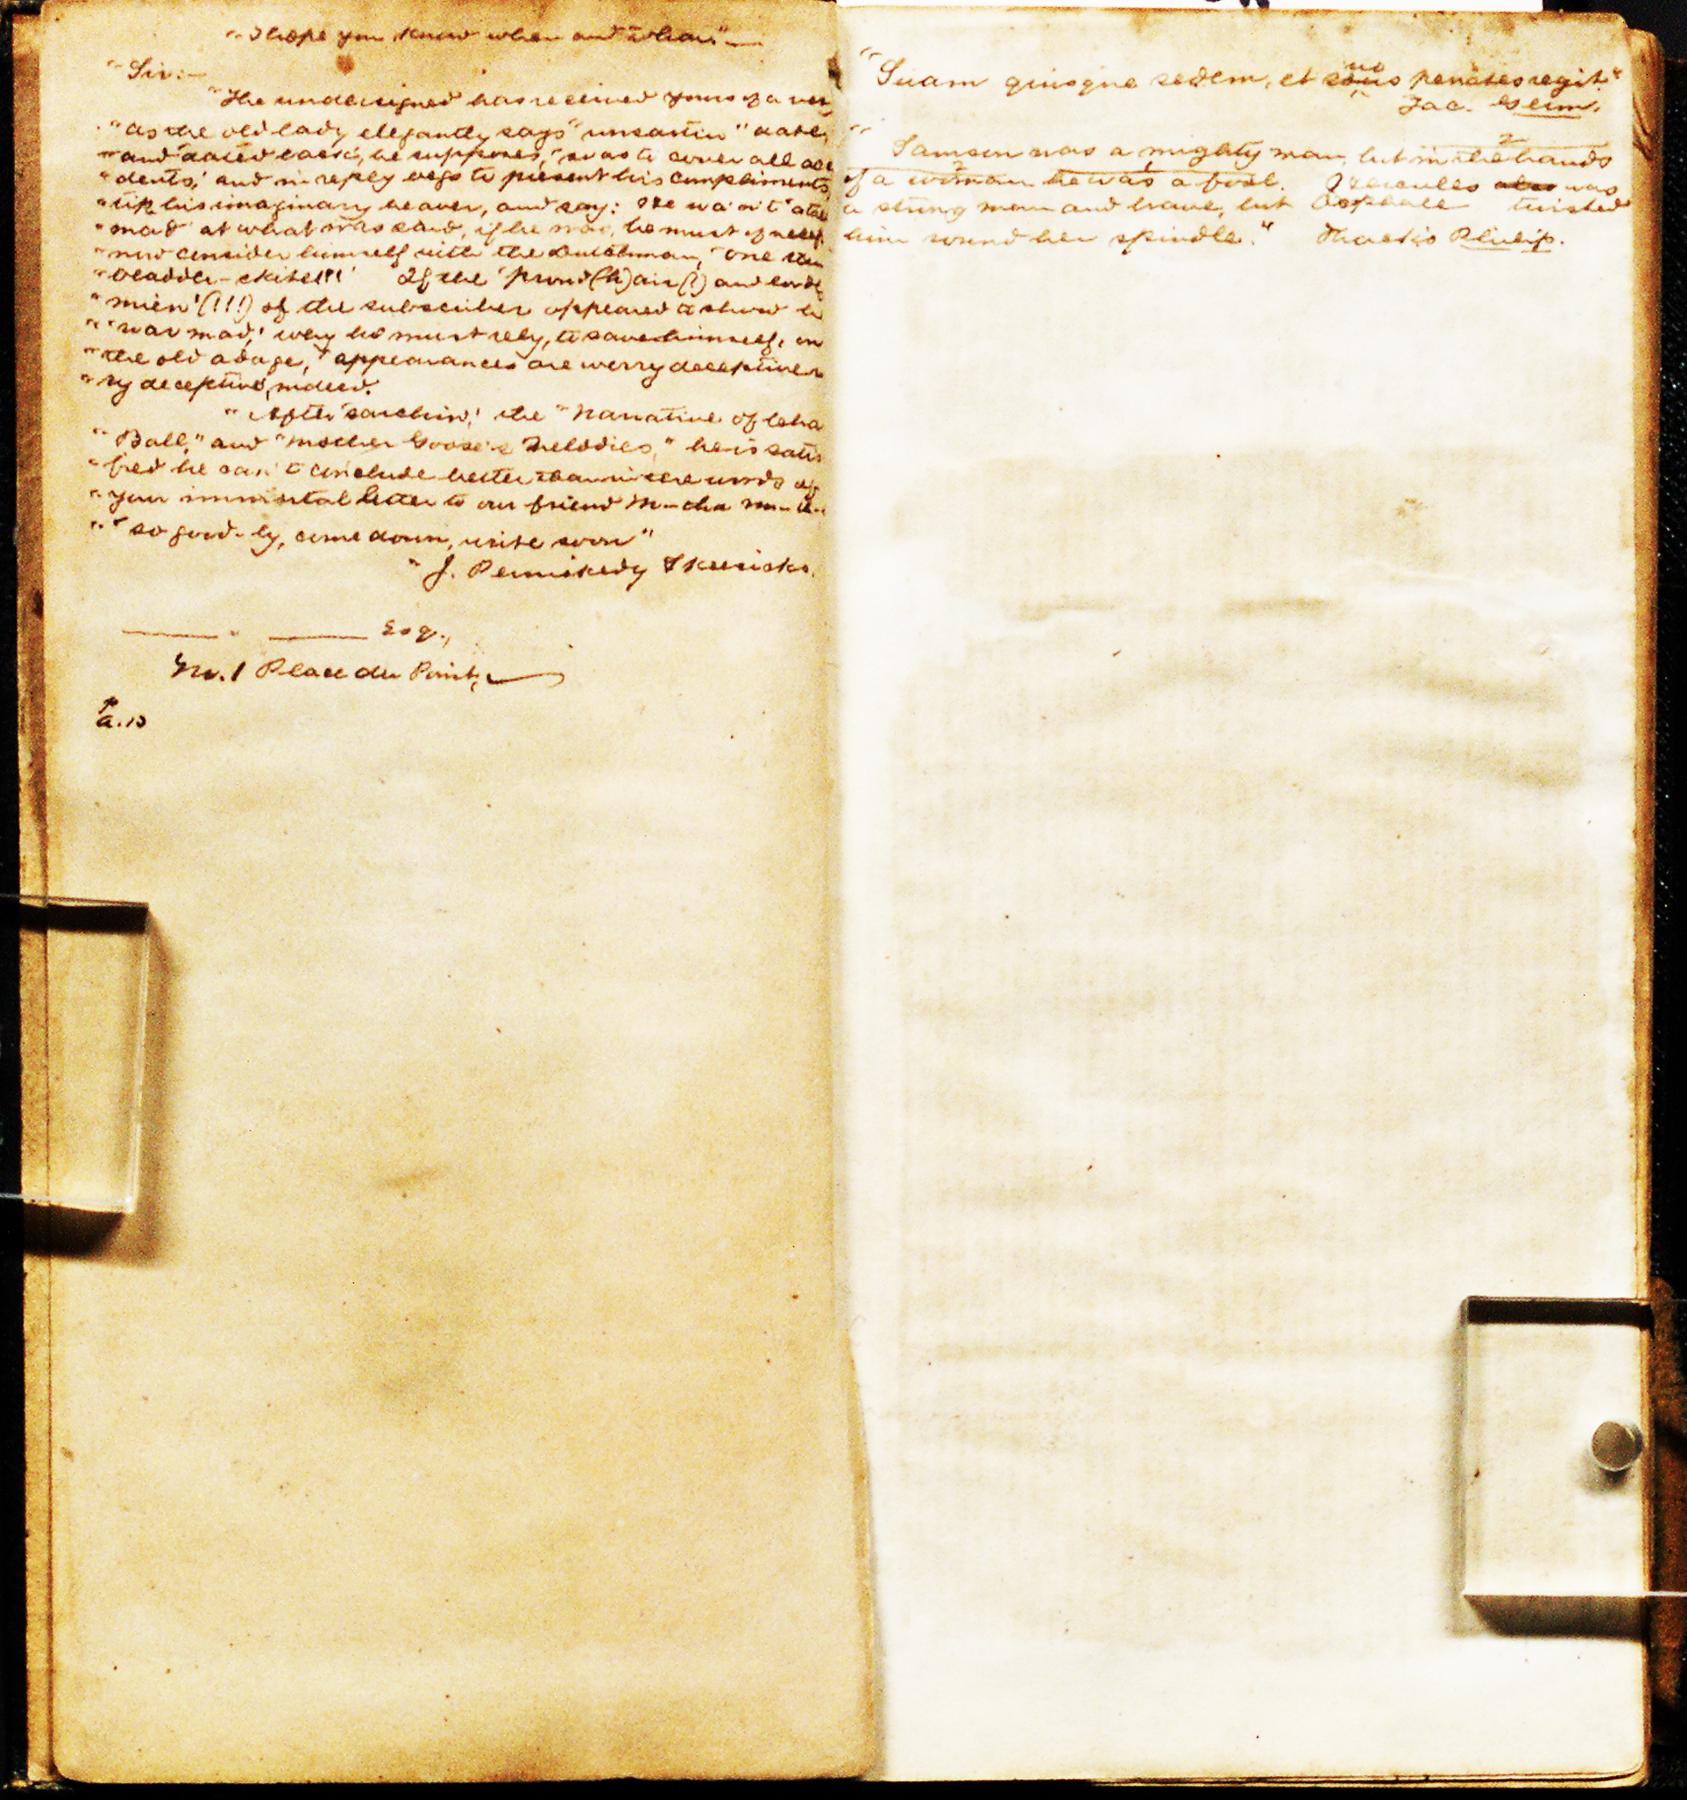 "I hope you know when and whar."—
"Sir:—
"The undersigned has received yours of a very
"as the old lady elegantly says "unsartin" date,
"and 'dated back', he supposes, 'so as to cover all acci
"dents,' and in reply begs to present his compliments,
"tip his imaginary beaver, and say: He wa'n't 'atall
"mad' at what was said, if he was, he must of neces
"now consider himself with the Dutchman, 'one
"bladder-skite!!!' If the 'proud (h)air(!) and lordly
"mien'(!!!) of the subscriber appeared to show he
"'war mad,' why he must rely, to save himself, on
"the old adage, 'appearances are werry deceptive
"ry deceptive, indeed.'
"After 'sarchin,' the "Narrative of
"Ball," and "Mother Goose's Melodies," he is satis
"fied he can't conclude better than in the words of
"your immortal letter to our friend
"'so good-by, come down, write soon"
"J.
——— " ——— Esq.,
No. 1 Place du Point,
"Suam quisque sedem, et suos penates regit."
Tac. Germ.
"Samson was a mighty man, but in the hands
of a woman he was a fool. Hercules also was
a strong man and brave, but Omphale twisted
him round her spindle." Thackis Philip.